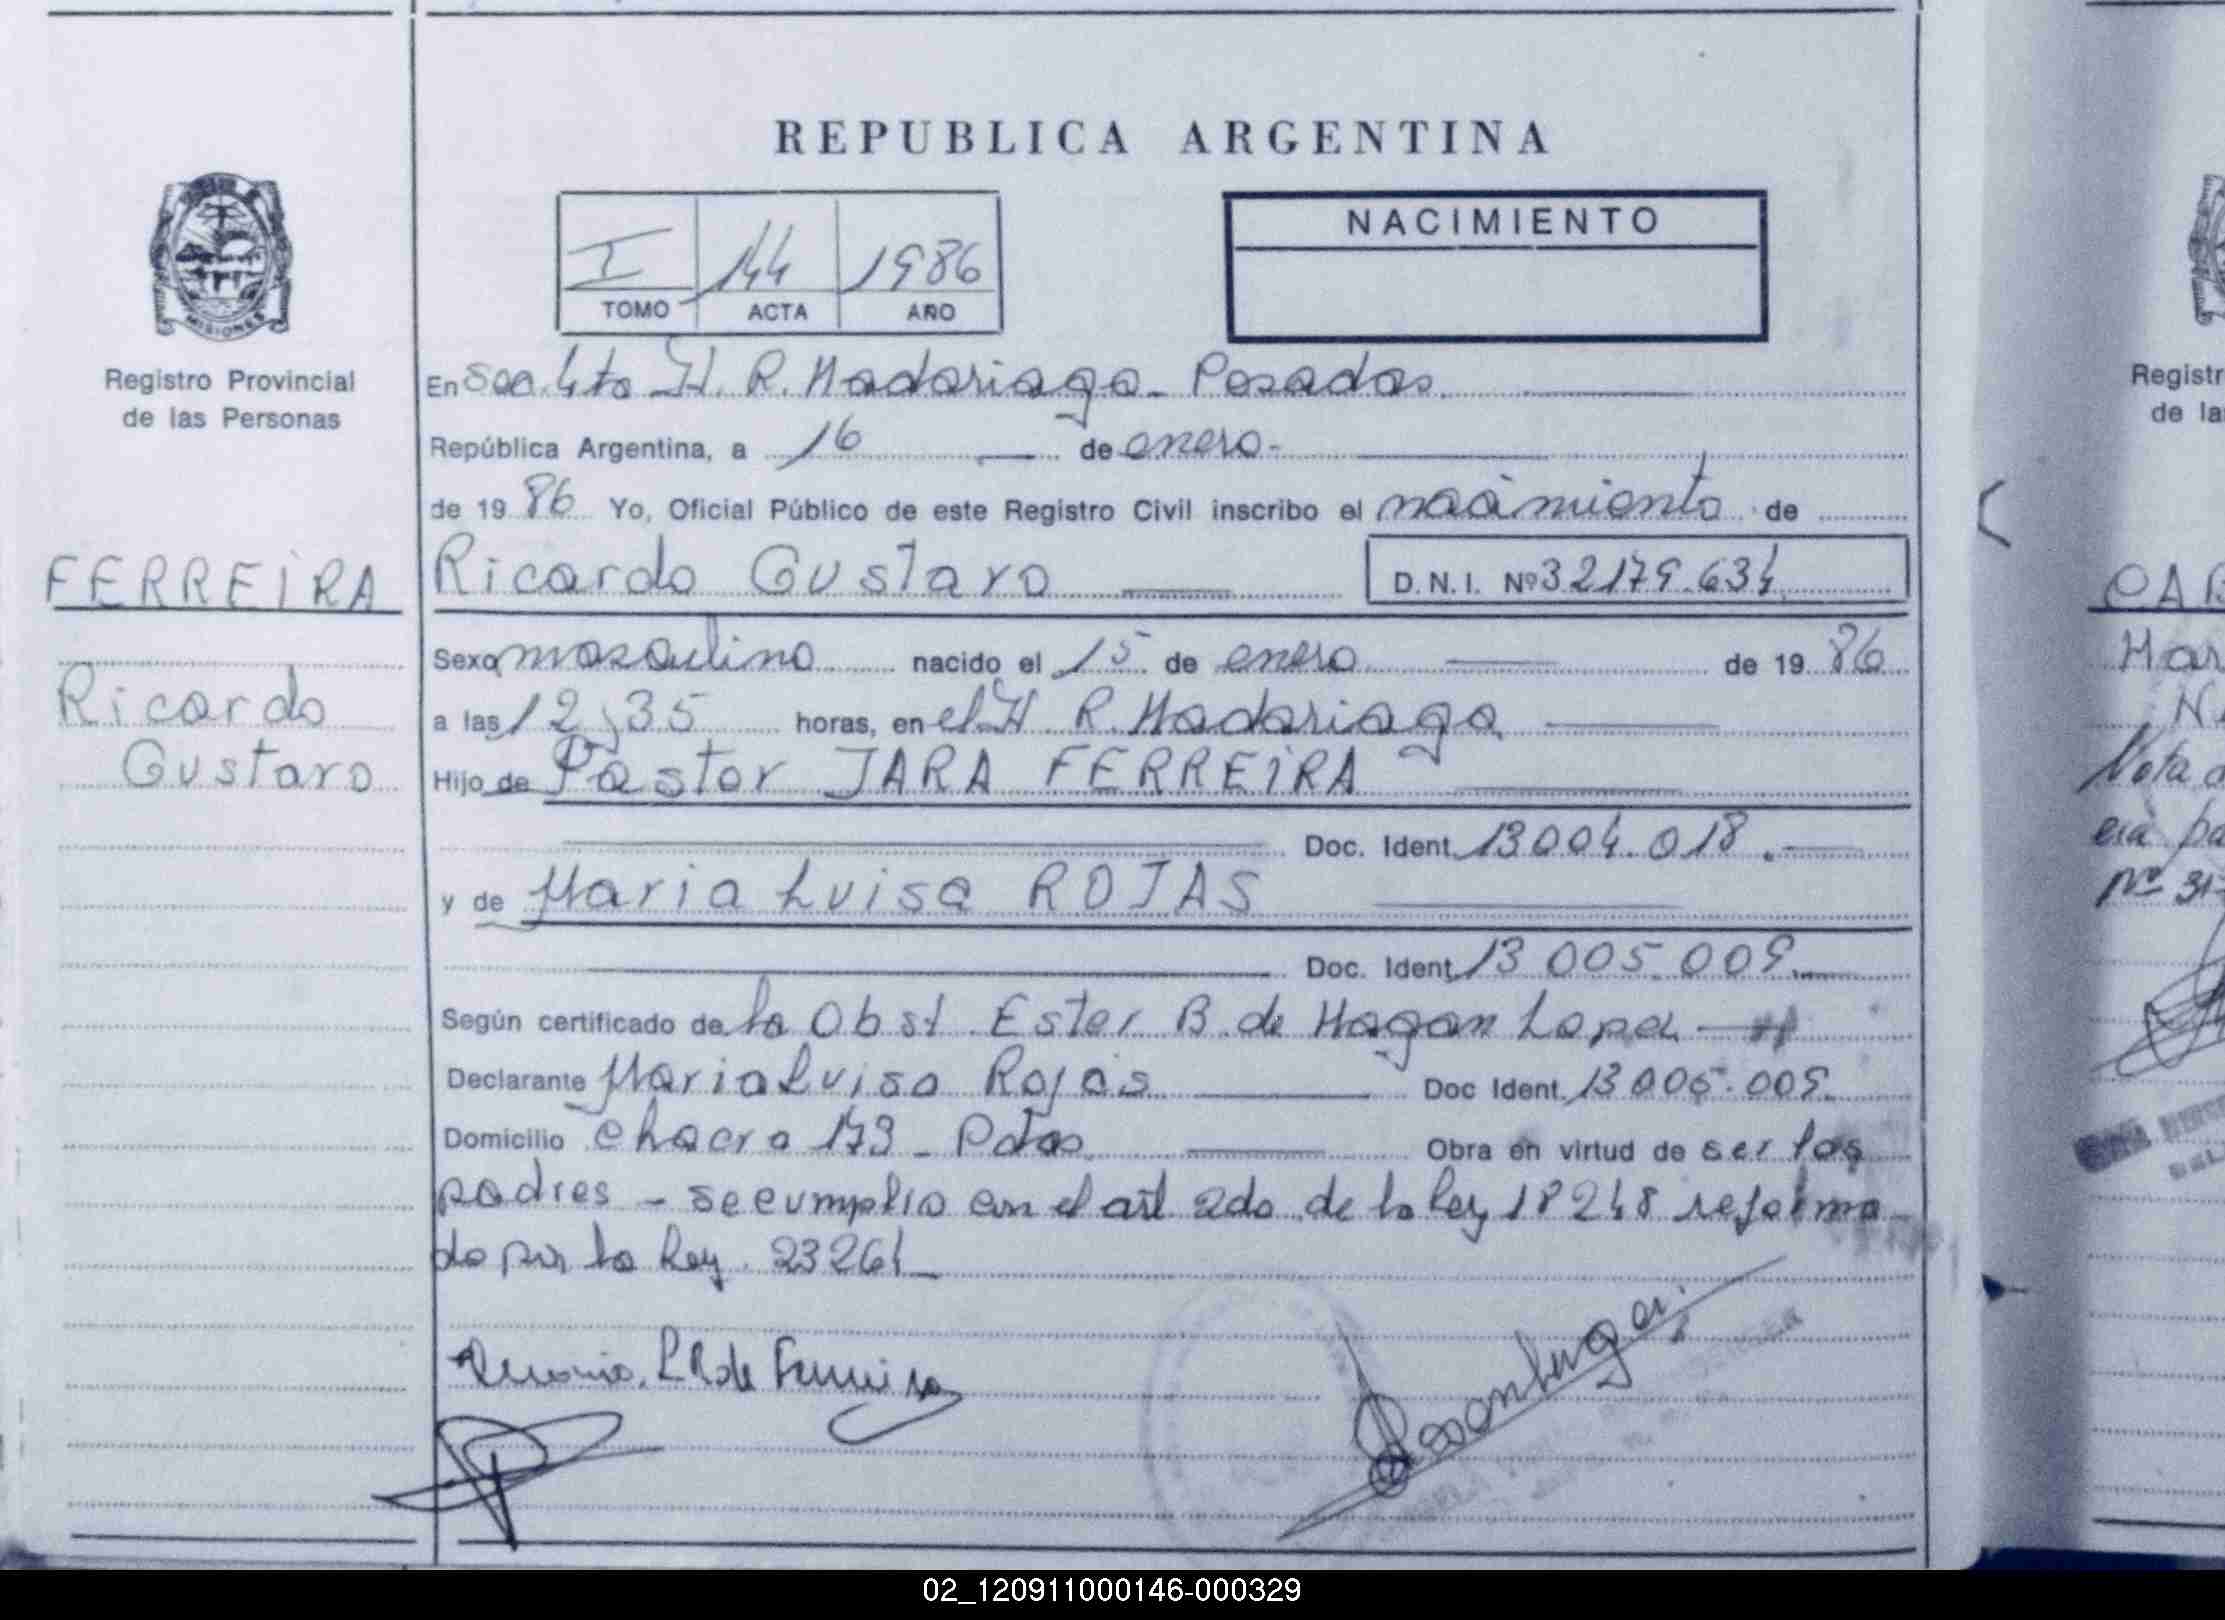 REPUBLICA ARGENTINA
I 144 1986
TOMO ACTA AÑO
NACIMIENTO
MISIONES
Registro Provincial
de las Personas
FERREIRA
Ricardo
Gustavo
En Sec. 4ta H. R. Madariaga - Posadas.
República Argentina, a 16 de enero -
de 1986 Yo, Oficial Público de este Registro Civil inscribo el nacimiento de
Ricardo Gustavo D.N.I. Nº 32179.634
Sexo masculino nacido el 15 de enero de 1986
a las 12,35 horas, en el H R. Madariaga
Hijo de Pastor JARA FERREIRA
Doc. Ident. 13004.018.
y de Maria Luisa ROJAS
Doc. Ident. 13 005.009.
Según certificado de la Obst. Ester B. de Hagan Lopez
Declarante Maria Luisa Rojas Doc Ident. 13 005.009.
Domicilio chacra 179 - Pdas. Obra en virtud de ser los
padres - se cumplio con el art 2do de la ley 18248 reforma-
do por la ley 23264
Registr
de la
CAB
Mar
Nota
era pa
Nº 317
02_120911000146-000329